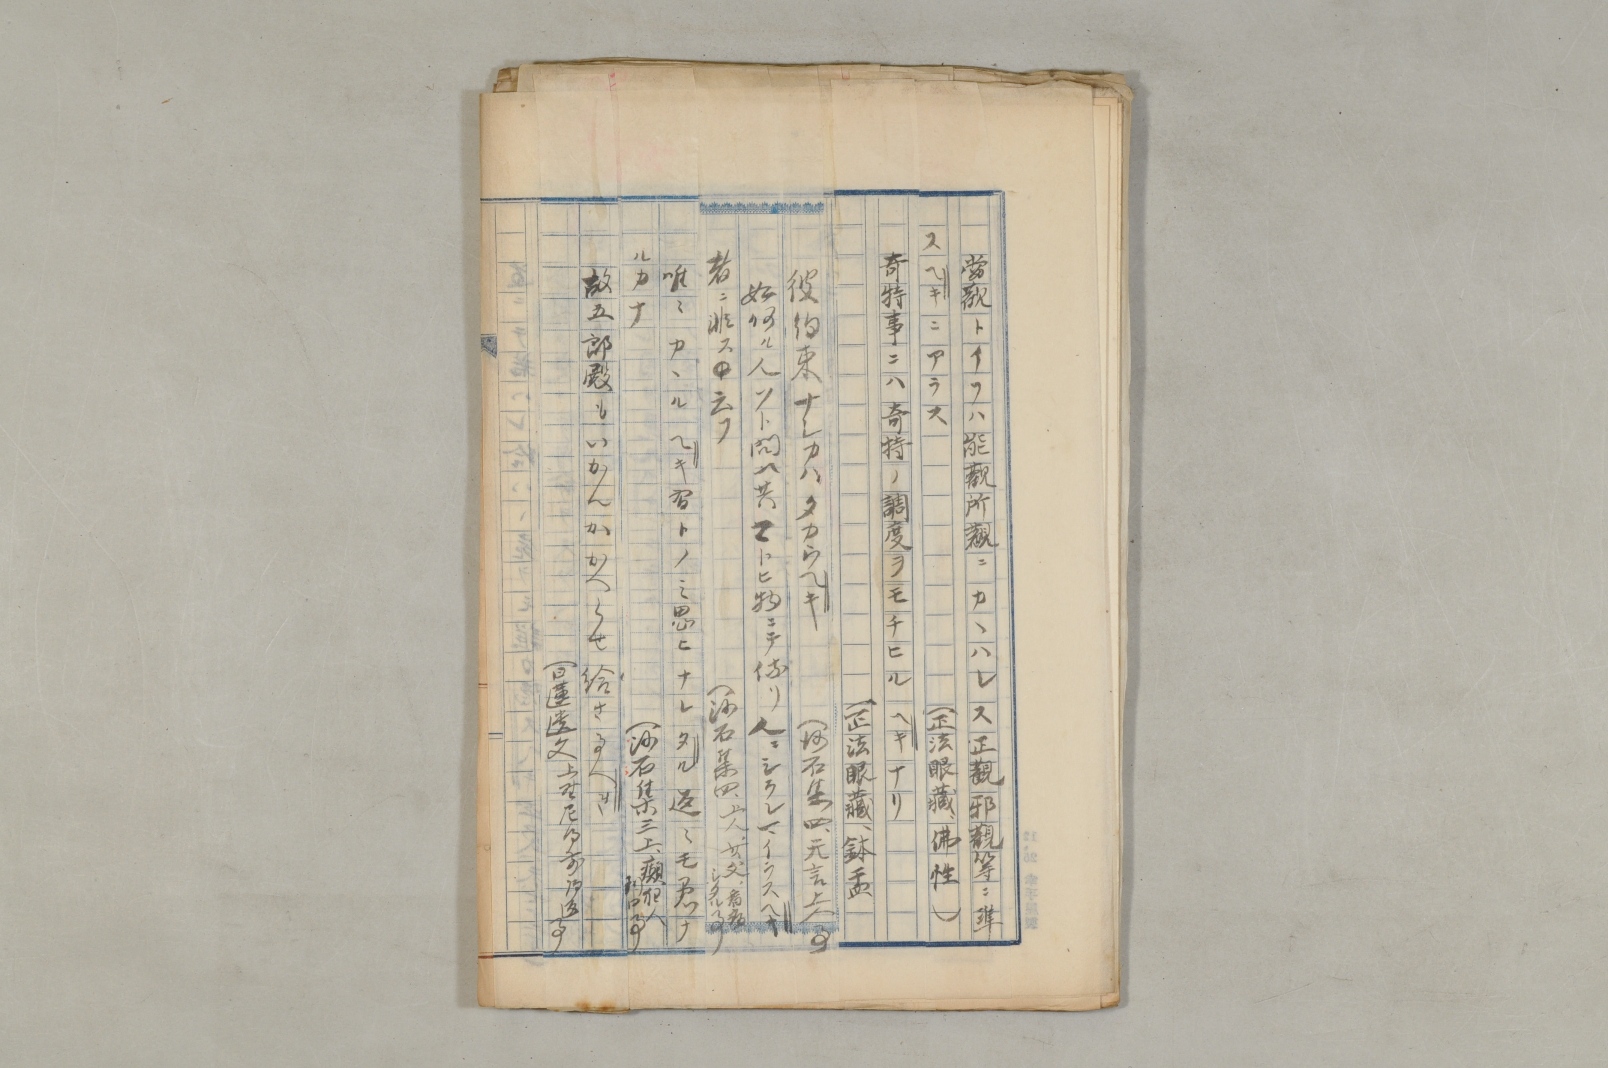 當觀トイフハ能觀所觀ニカヽハレス正觀邪觀等ニ準
スヘキニアラス
(正法眼藏、佛性)
奇特事ニハ奇特ノ調度ヲモチヒルヘキナリ
(正法眼藏、鉢盂
彼約束ナシカハタカウヘキ
(沙石集四、无言上人事
如何ル人ソト問ヘ共マトヒ物ニテ侍リ人ニシラレマイラスヘキ
者ニ非ス申云フ
(沙石集四、上人女父、看病シタル事
唯ミカヽルヘキ習トノミ思ヒナレタル返ミモ愚ナ
ルカナ
(沙石集三上、癲狂人利口事
故五郎殿もいかんかかへらせ給さるへき
(日蓮遺文